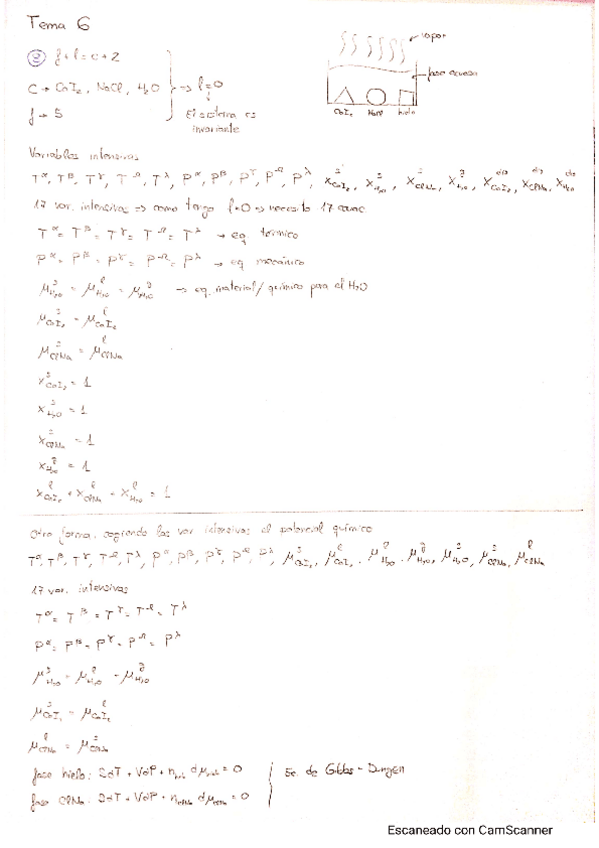 Tema 6
② f + l = c + 2
C → CaI₂, NaCl, H₂O → l = 0
f → 5
El sistema es
invariante
vapor
fase acuosa
CaI₂ NaCl hielo
Variables intensivas
T^α, T^β, T^γ, T^Ω, T^λ, P^α, P^β, P^γ, P^Ω, P^λ, X^s_CaI₂, X^s_H₂O, X^s_ClNa, X^g_H₂O, X^dis_CaI₂, X^dis_ClNa, X^dis_H₂O
17 var. intensivas => como tengo l=0 => necesito 17 ecuac.
T^α = T^β = T^γ = T^Ω = T^λ → eq. térmico
P^α = P^β = P^γ = P^Ω = P^λ → eq mecánico
μ^s_H₂O = μ^l_H₂O = μ^g_H₂O → eq. material/químico para el H₂O
μ^s_CaI₂ = μ^l_CaI₂
μ^s_ClNa = μ^l_ClNa
X^s_CaI₂ = 1
X^s_H₂O = 1
X^s_ClNa = 1
X^g_H₂O = 1
X^l_CaI₂ + X^l_ClNa + X^l_H₂O = 1
Otra forma, cogiendo las var intensivas el potencial químico
T^α, T^β, T^γ, T^Ω, T^λ, P^α, P^β, P^γ, P^Ω, P^λ, μ^s_CaI₂, μ^l_CaI₂, μ^l_H₂O, μ^g_H₂O, μ^s_H₂O, μ^s_ClNa, μ^l_ClNa
17 var. intensivas
T^α = T^β = T^γ = T^Ω = T^λ
P^α = P^β = P^γ = P^Ω = P^λ
μ^s_H₂O = μ^l_H₂O = μ^g_H₂O
μ^s_CaI₂ = μ^l_CaI₂
μ^l_ClNa = μ^s_ClNa
fase hielo: SdT + VdP + n dμ = 0
Ec. de Gibbs - Duhem
fase ClNa: SdT + VdP + n_ClNa dμ_ClNa = 0
Escaneado con CamScanner